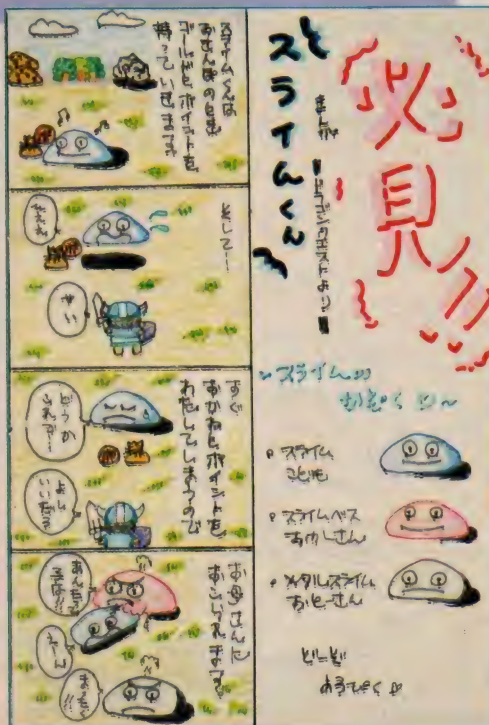 必見!!
まんが
スライムくん
ドラゴンクエストより
~スライムの
かぞく~
スライム
こども
スライムベス
おかーさん
メタルスライム
おとーさん
どーぞ
よろぴく
スライムくんは
おさんぽのとき
ゴールドとポイントを
持っていきます
そして…
せい
すぐ
おかねとポイントを
わたしてしまうので
どうか
これで…
よし
いいだろ
お母さんに
おこられます
あんたって
子は!!
えーん
まったく!!!